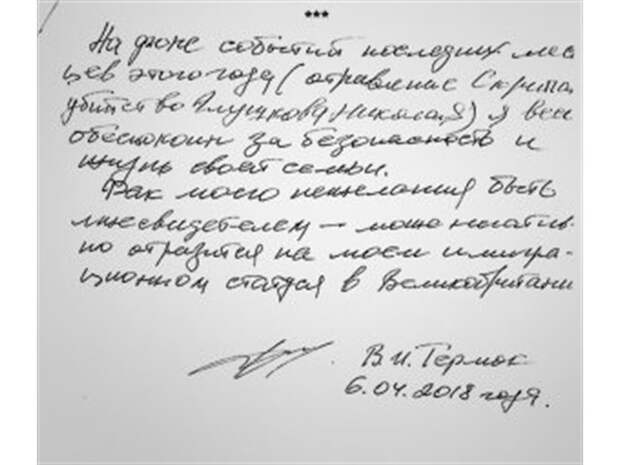 ***
На фоне событий последних мес
цев этого года (отравление Скрипа
убийство Глушкова Николая) я вес
обеспокоин за безопасность и
жизнь своей семьи.
Фак моего нежелания быть
лжесвидетелем — може негатив-
но отразится на моем имигра-
ционном статусе в Великобритани
В.И. Гермок
6.04.2018 года.